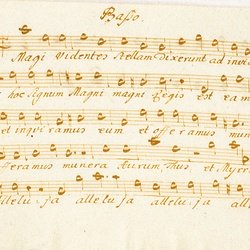 Basso.
Magi videntes stellam dixerunt ad invi
hoc signum Magni magni Regis est eam
et inqui ramus eum et offe ramus mun
feramus munera Aurum, Thus et Myrr
allelu: ja allelu ja allelu: ja allelu